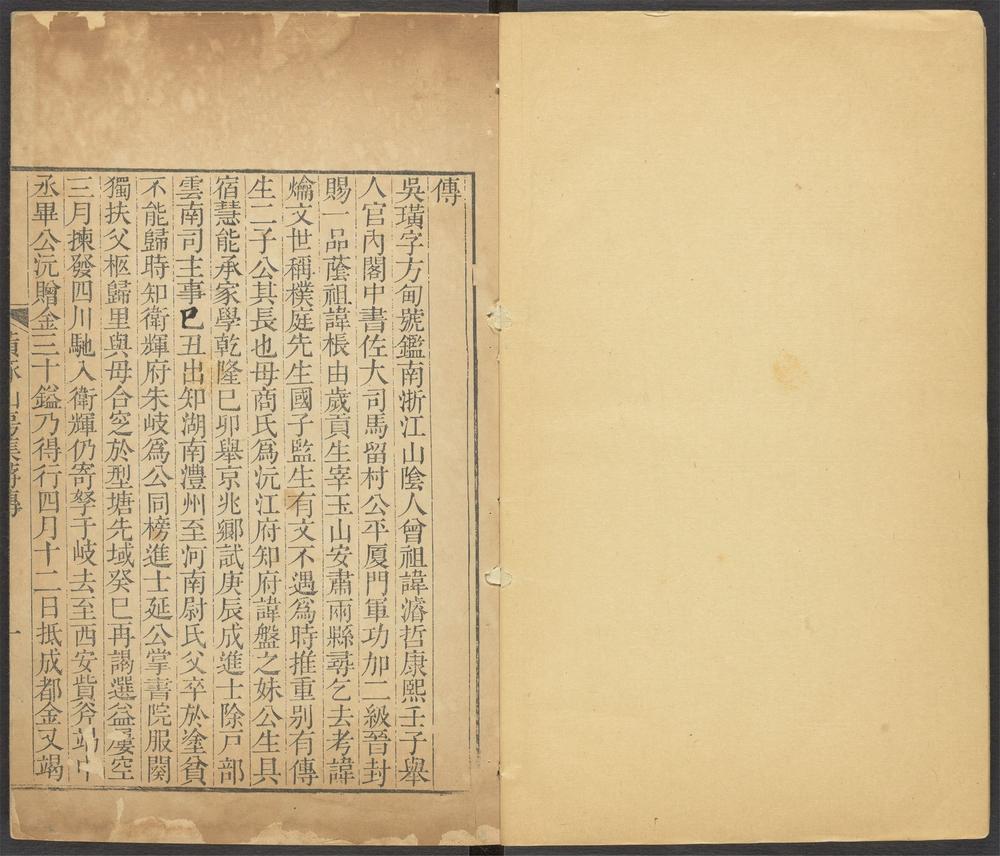 傳
吳璜字方甸號鑑南浙江山陰人曾祖諱濬哲康熙壬子舉
人官內閣中書佐大司馬留村公平厦門軍功加二級晉封
賜一品蔭祖諱棖由歲貢生宰玉山安肅兩縣尋乞去考諱
爚文世稱樸庭先生國子監生有文不遇爲時推重别有傳
生二子公其長也母商氏爲沅江府知府諱盤之妹公生具
宿慧能承家學乾隆巳卯舉京兆鄉試庚辰成進士除戸部
雲南司主事巳丑出知湖南澧州至河南尉氏父卒於塗貧
不能歸時知衛輝府朱岐爲公同榜進士延公掌書院服闋
獨扶父柩歸里與母合窆於型塘先域癸巳再謁選益屢空
三月揀發四川馳入衛輝仍寄孥于岐去至西安貲斧竭中
丞畢公沅贈金三十鎰乃得行四月十二日抵成都金又竭
集蔣傳
一